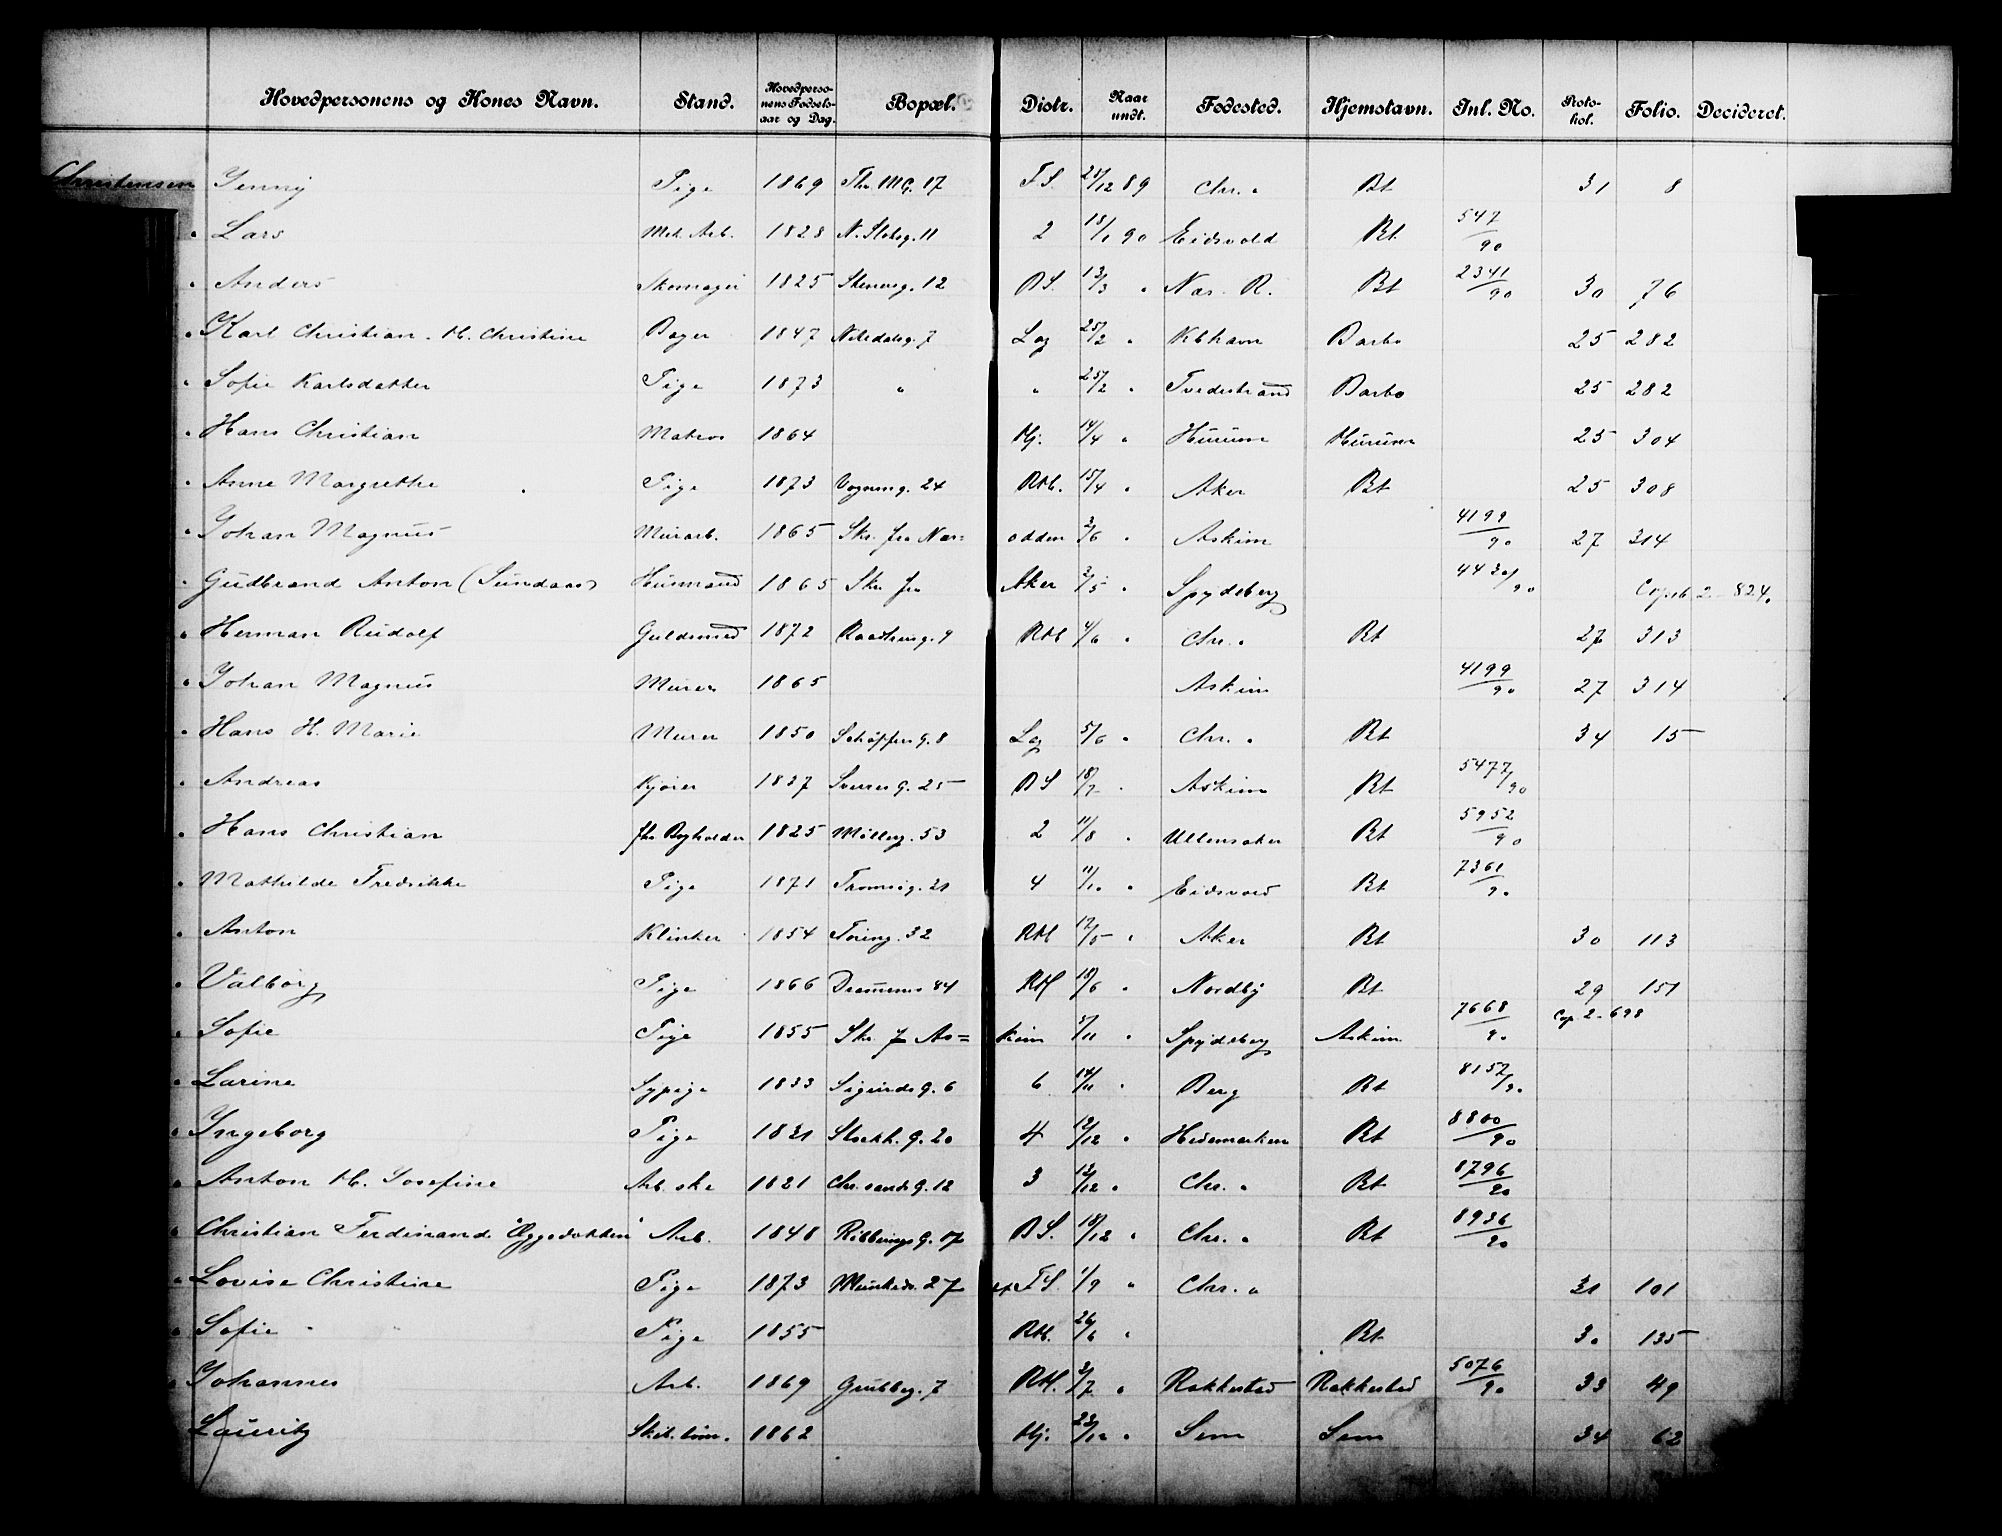 Hovedpersonens og Kones Navn. Stand. Hovedperso-nens Fødsels-aar og Dag. Bopæl. Distr. Naar undt. Fødested. Hjemstavn. Inl. No. Proto-kol. Folio. Decideret.
Christensen Jenny Pige 1869 Thv. M G. 17 F S. 21/12 89 Chr.a Bt 31 8
" Lars Mek. Arb. 1828 N. Slotsg. 11 2 18/1 90 Eidsvold Bt. 547/90
" Anders Skomager 1825 Stenersg. 12 B S. 13/3 " Næs. R. Bt 2341/90 30 76
" Karl Christian. H. Christine Bager 1847 Nitedalsg. 7 Lag 25/2 " Kbhavn Barbo 25 282
" Sofie Karlsdatter Pige 1873 " " 25/2 " Tvedestrand Barbo 25 282
" Hans Christian Matros 1864 Hj. 14/4 " Hurum Hurum 25 304
" Anne Margrethe Pige 1873 Vognmg. 24 RH. 15/4 " Aker Bt 25 308
" Johan Magnus Murarb. 1865 Skr. fra Næs= odden 3/6 " Askim 4199/90 27 314
" Gudbrand Anton (Sundaas) Husmand 1865 Skr. fra Aker 3/5 " Spydeberg 4430/90 Copib 2 - 824.
" Herman Rudolf Guldsmed 1872 Raadhusg. 9 RH 4/6 " Chr.a Bt 27 313
" Johan Magnus Murer 1865 Askim 4199/90 27 314
" Hans H. Marie Murer 1850 Schøffers G. 8 Lag 5/6 " Chr.a Bt 34 15
" Andreas Kjører 1837 Sverres G. 25 B S 18/7 " Askim Bt 5477/90
" Hans Christian fhv Bogholder 1825 Møllerg. 53 2 11/8 " Ullensaker Bt 5952/90
" Mathilde Fredrikke Pige 1871 Tromsøg. 21 4 11/10 " Eidsvold Bt 7361/90
" Anton Klinker 1854 Torvg. 32 RH 12/5 " Aker Bt 30 113
" Valborg Pige 1866 Drammensv 84 RH 18/6 " Nordby Bt 29 151
" Sofie Pige 1855 Skr f As= kim 5/11 " Spydeberg Askim 7668/90 Cop. 2 - 698
" Larine Sypige 1833 Sigurds G. 6 6 14/11 " Berg Bt 8152/90
" Ingeborg Pige 1821 Stockh. G. 20 4 12/12 " Hedemarken Bt 8800/90
" Anton H. Josefine Arb. ske 1821 Chr.sands G. 12 3 12/12 " Chr.a Bt 8796/90
" Christian Ferdinand "Æggedokken" Arb. 1848 Ribbervigs G. 17 B S. 18/12 " Chr.a Bt 8936/90
" Lovise Christine Pige 1873 Munkedv. 27 F S. 1/9 " Chr.a 31 101
" Sofie Pige 1855 RH. 26/6 " Bt 30 135
" Johannes Arb. 1869 Grubbeg. 7 RH. 3/7 " Rakkestad Rakkestad 5076/90 33 49
Lauritz Skib. tøm. 1862 Hj. 23/12 " Sem Sem 34 62